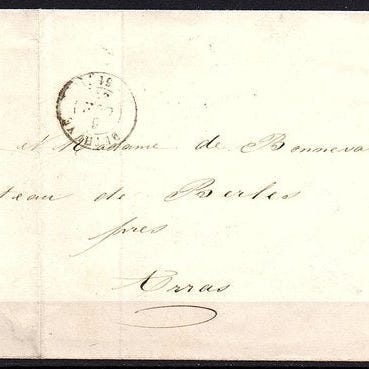 et Madame de Bonneva
teau de Berles
pres
Arras